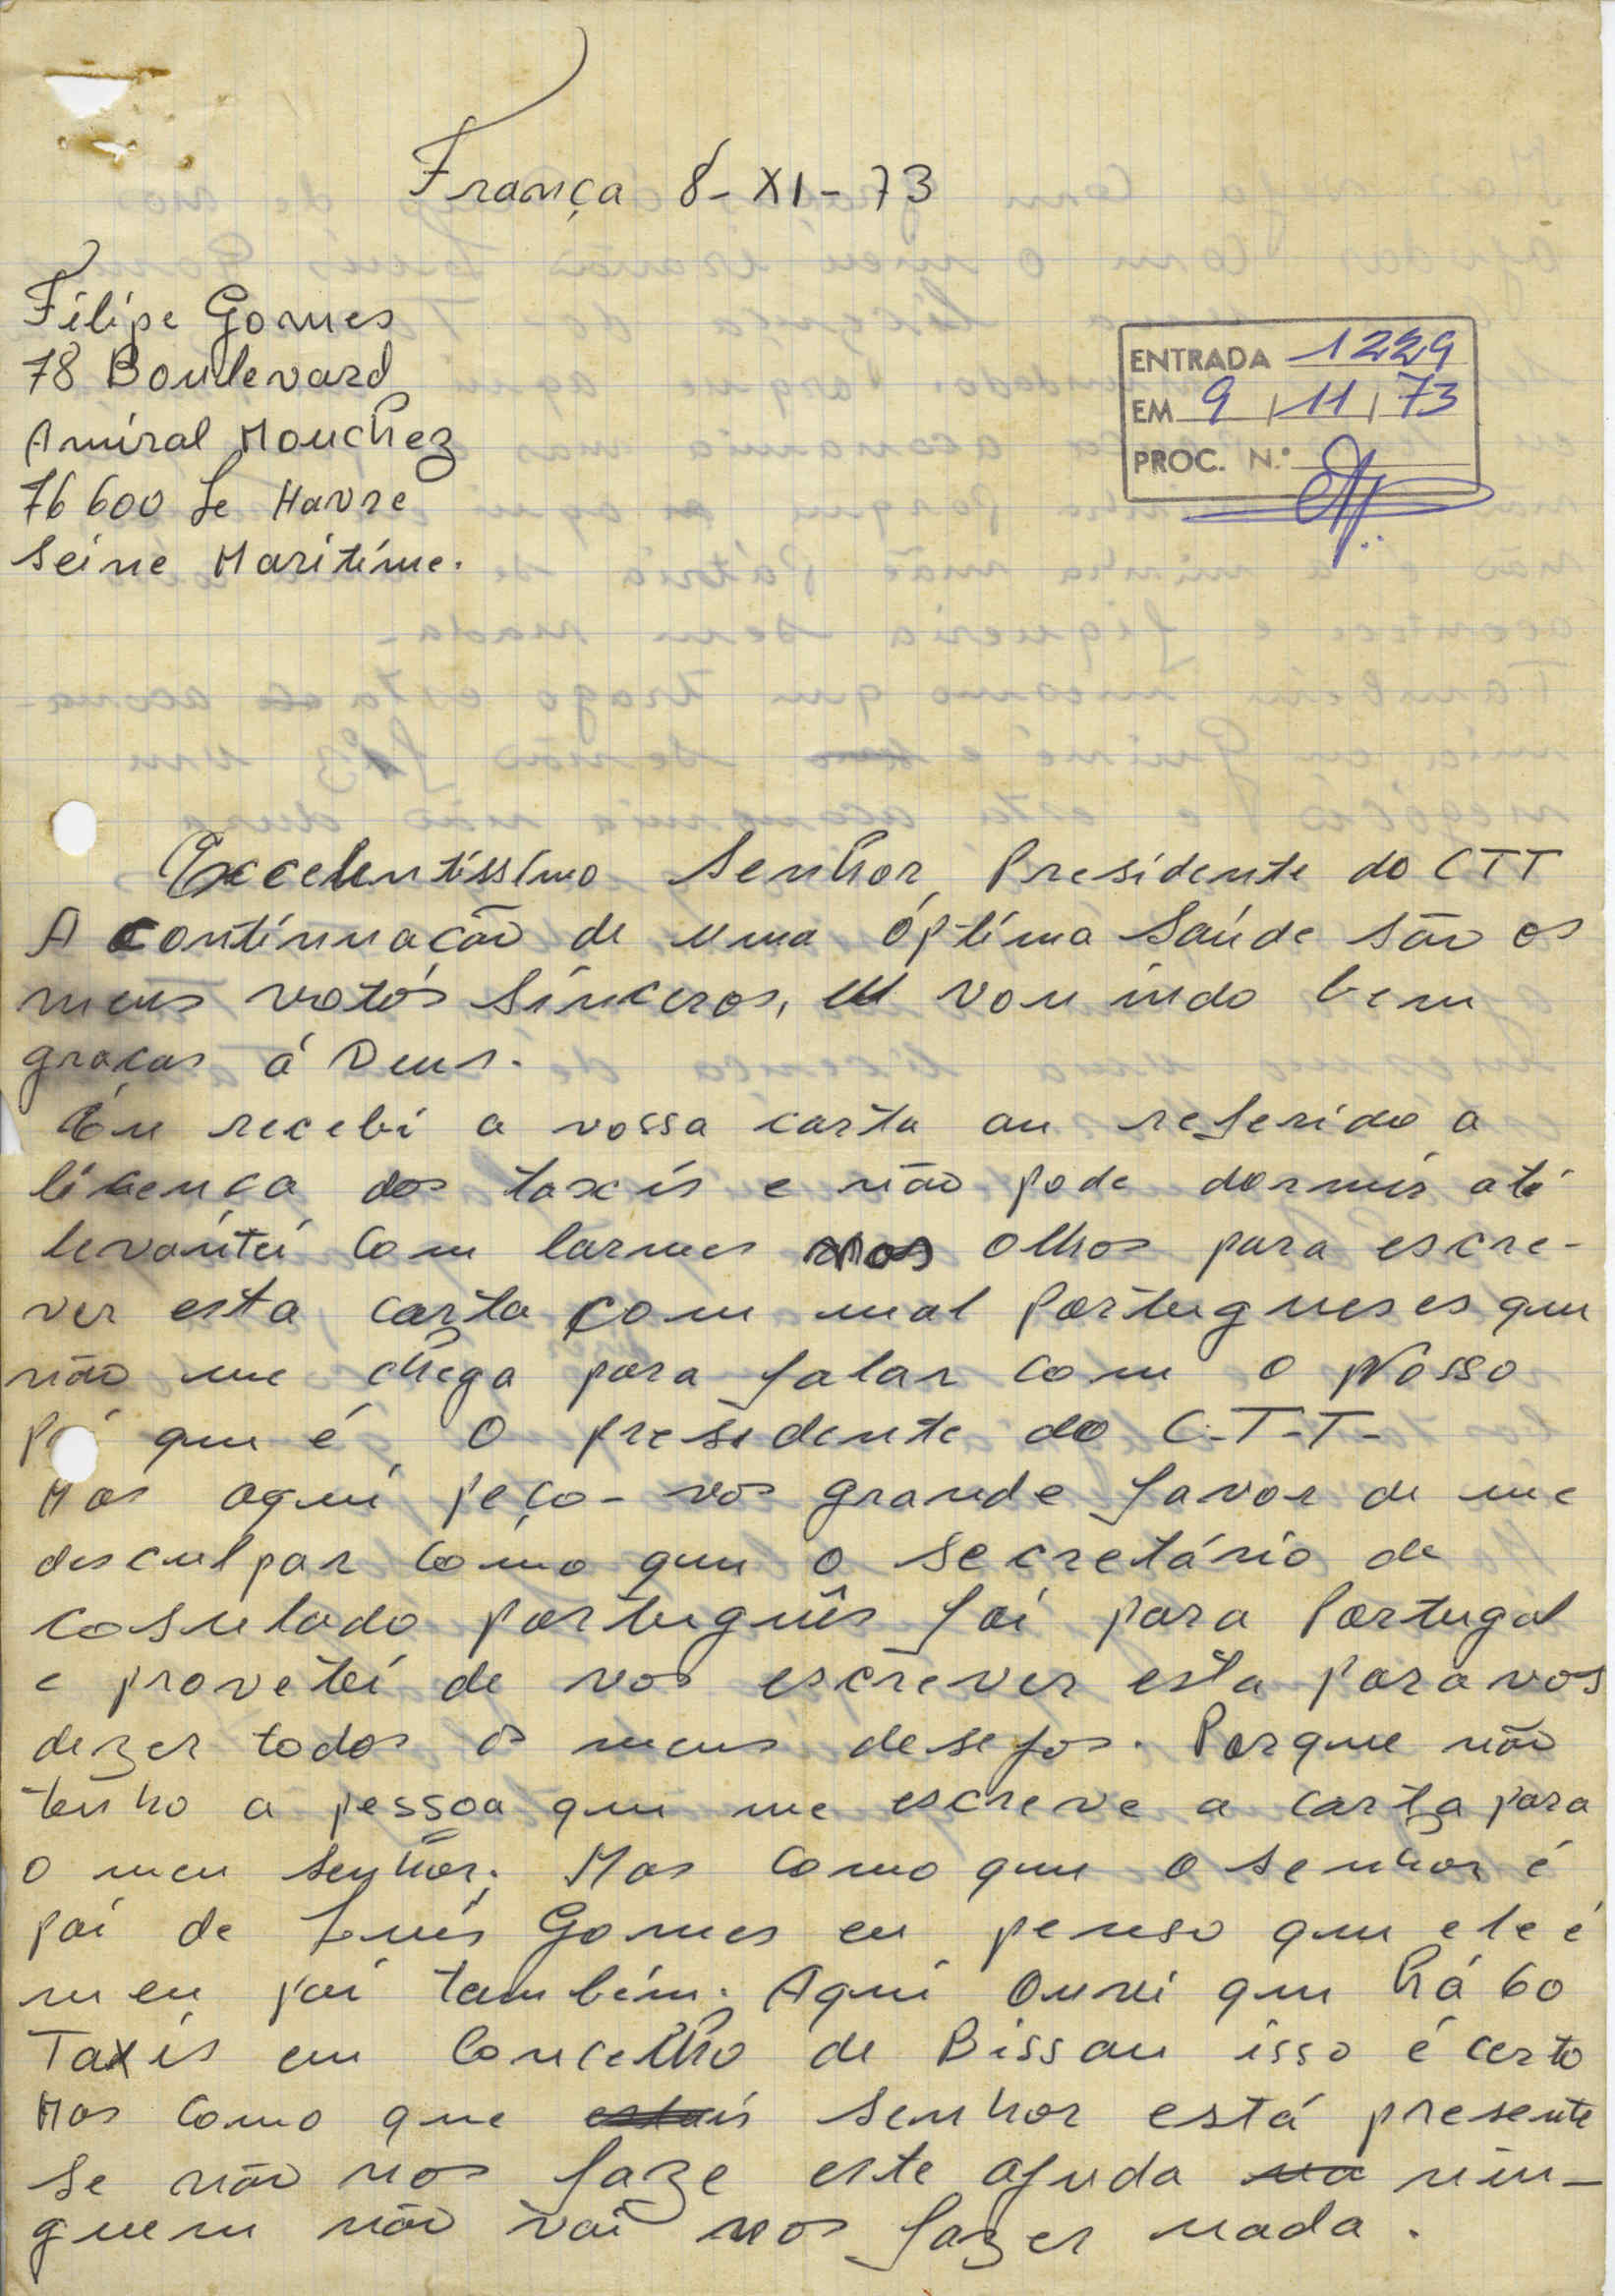 França 8-XI-73
Filipe Gomes
78 Boulevard
Amiral Mouchez
76 600 Le Havre
Seine Maritime.
ENTRADA 1229
EM 9/11/73
PROC. N.º
Excelentíssimo Senhor Presidente do CTT
A continuação de uma óptima Saúde são os
meus votós Sínceros, eu vou indo bem
graças á Deus.
Eu recebi a vossa carta au referido a
licença dos taxis e não pode dormir até
levantei com larmes nos olhos para escre-
ver esta carta com mal Portugueses que
não me chega para falar com o Nosso
que é o presidente do C-T-T-
Mas aqui peço-vos grande favor de me
desculpar como que o secretário de
cosulado português foi para Portugal
e proveitei de vos escrever esta para vos
dezer todos os meus desejos. Porque não
tenho a pessoa que me escreve a carta para
o meu senhor; Mas como que o senhor é
pai de Luís Gomes eu penso que ele é
meu pai também. Aqui ouvi que há 60
Taxis em Concelho de Bissau isso é certo
Mas como que senhor está presente
se não nos faze este ajuda nin-
guem não vai nos fazer nada.